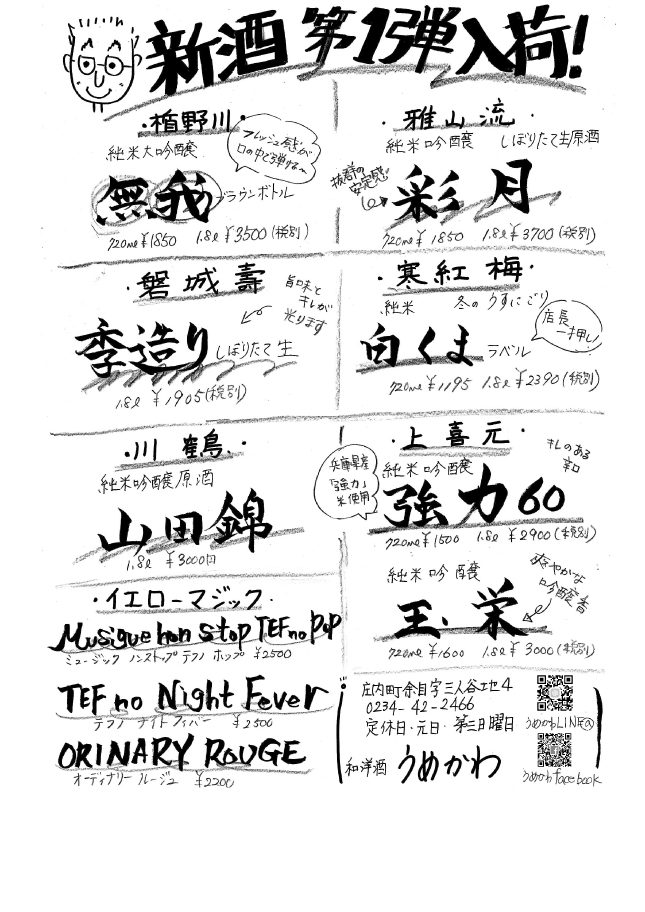 新酒第1弾入荷!
・楯野川・
純米大吟醸
フレッシュ感が
口の中で弾ける〜
無我 ブラウンボトル
720ml ¥1850 1.8l ¥3500 (税別)
・雅山流・
純米吟醸 しぼりたて生原酒
抜群の
安定感
彩月
720ml ¥1850 1.8l ¥3700 (税別)
・磐城壽
旨味と
キレが
光ります
季造り しぼりたて生
1.8l ¥1905 (税別)
・寒紅梅・
純米 冬のうすにごり
店長
一押し!
向くま ラベル
720ml ¥1195 1.8l ¥2390 (税別)
・川鶴・
純米吟醸原酒
山田錦
1.8l ¥3000円
・上喜元・
キレのある
辛口
純米吟醸
兵庫県産
「強力」
米使用
強力60
720ml ¥1500 1.8l ¥2900 (税別)
純米吟醸
爽やかな
吟醸香
玉・栄
720ml ¥1600 1.8l ¥3000 (税別)
・イエローマジック・
Musique hon stop TEF no pop
ミュージック ノンストップ テクノ ホップ ¥2500
TEF no Night Fever
テフノ ナイト フィバー ¥2500
ORINARY ROUGE
オーディナリー ルージュ ¥2200
庄内町余目字三人谷エセ4
0234-42-2466
定休日・元日・第三日曜日
和洋酒 うめかわ
うめかわLINE@
うめかわfacebook